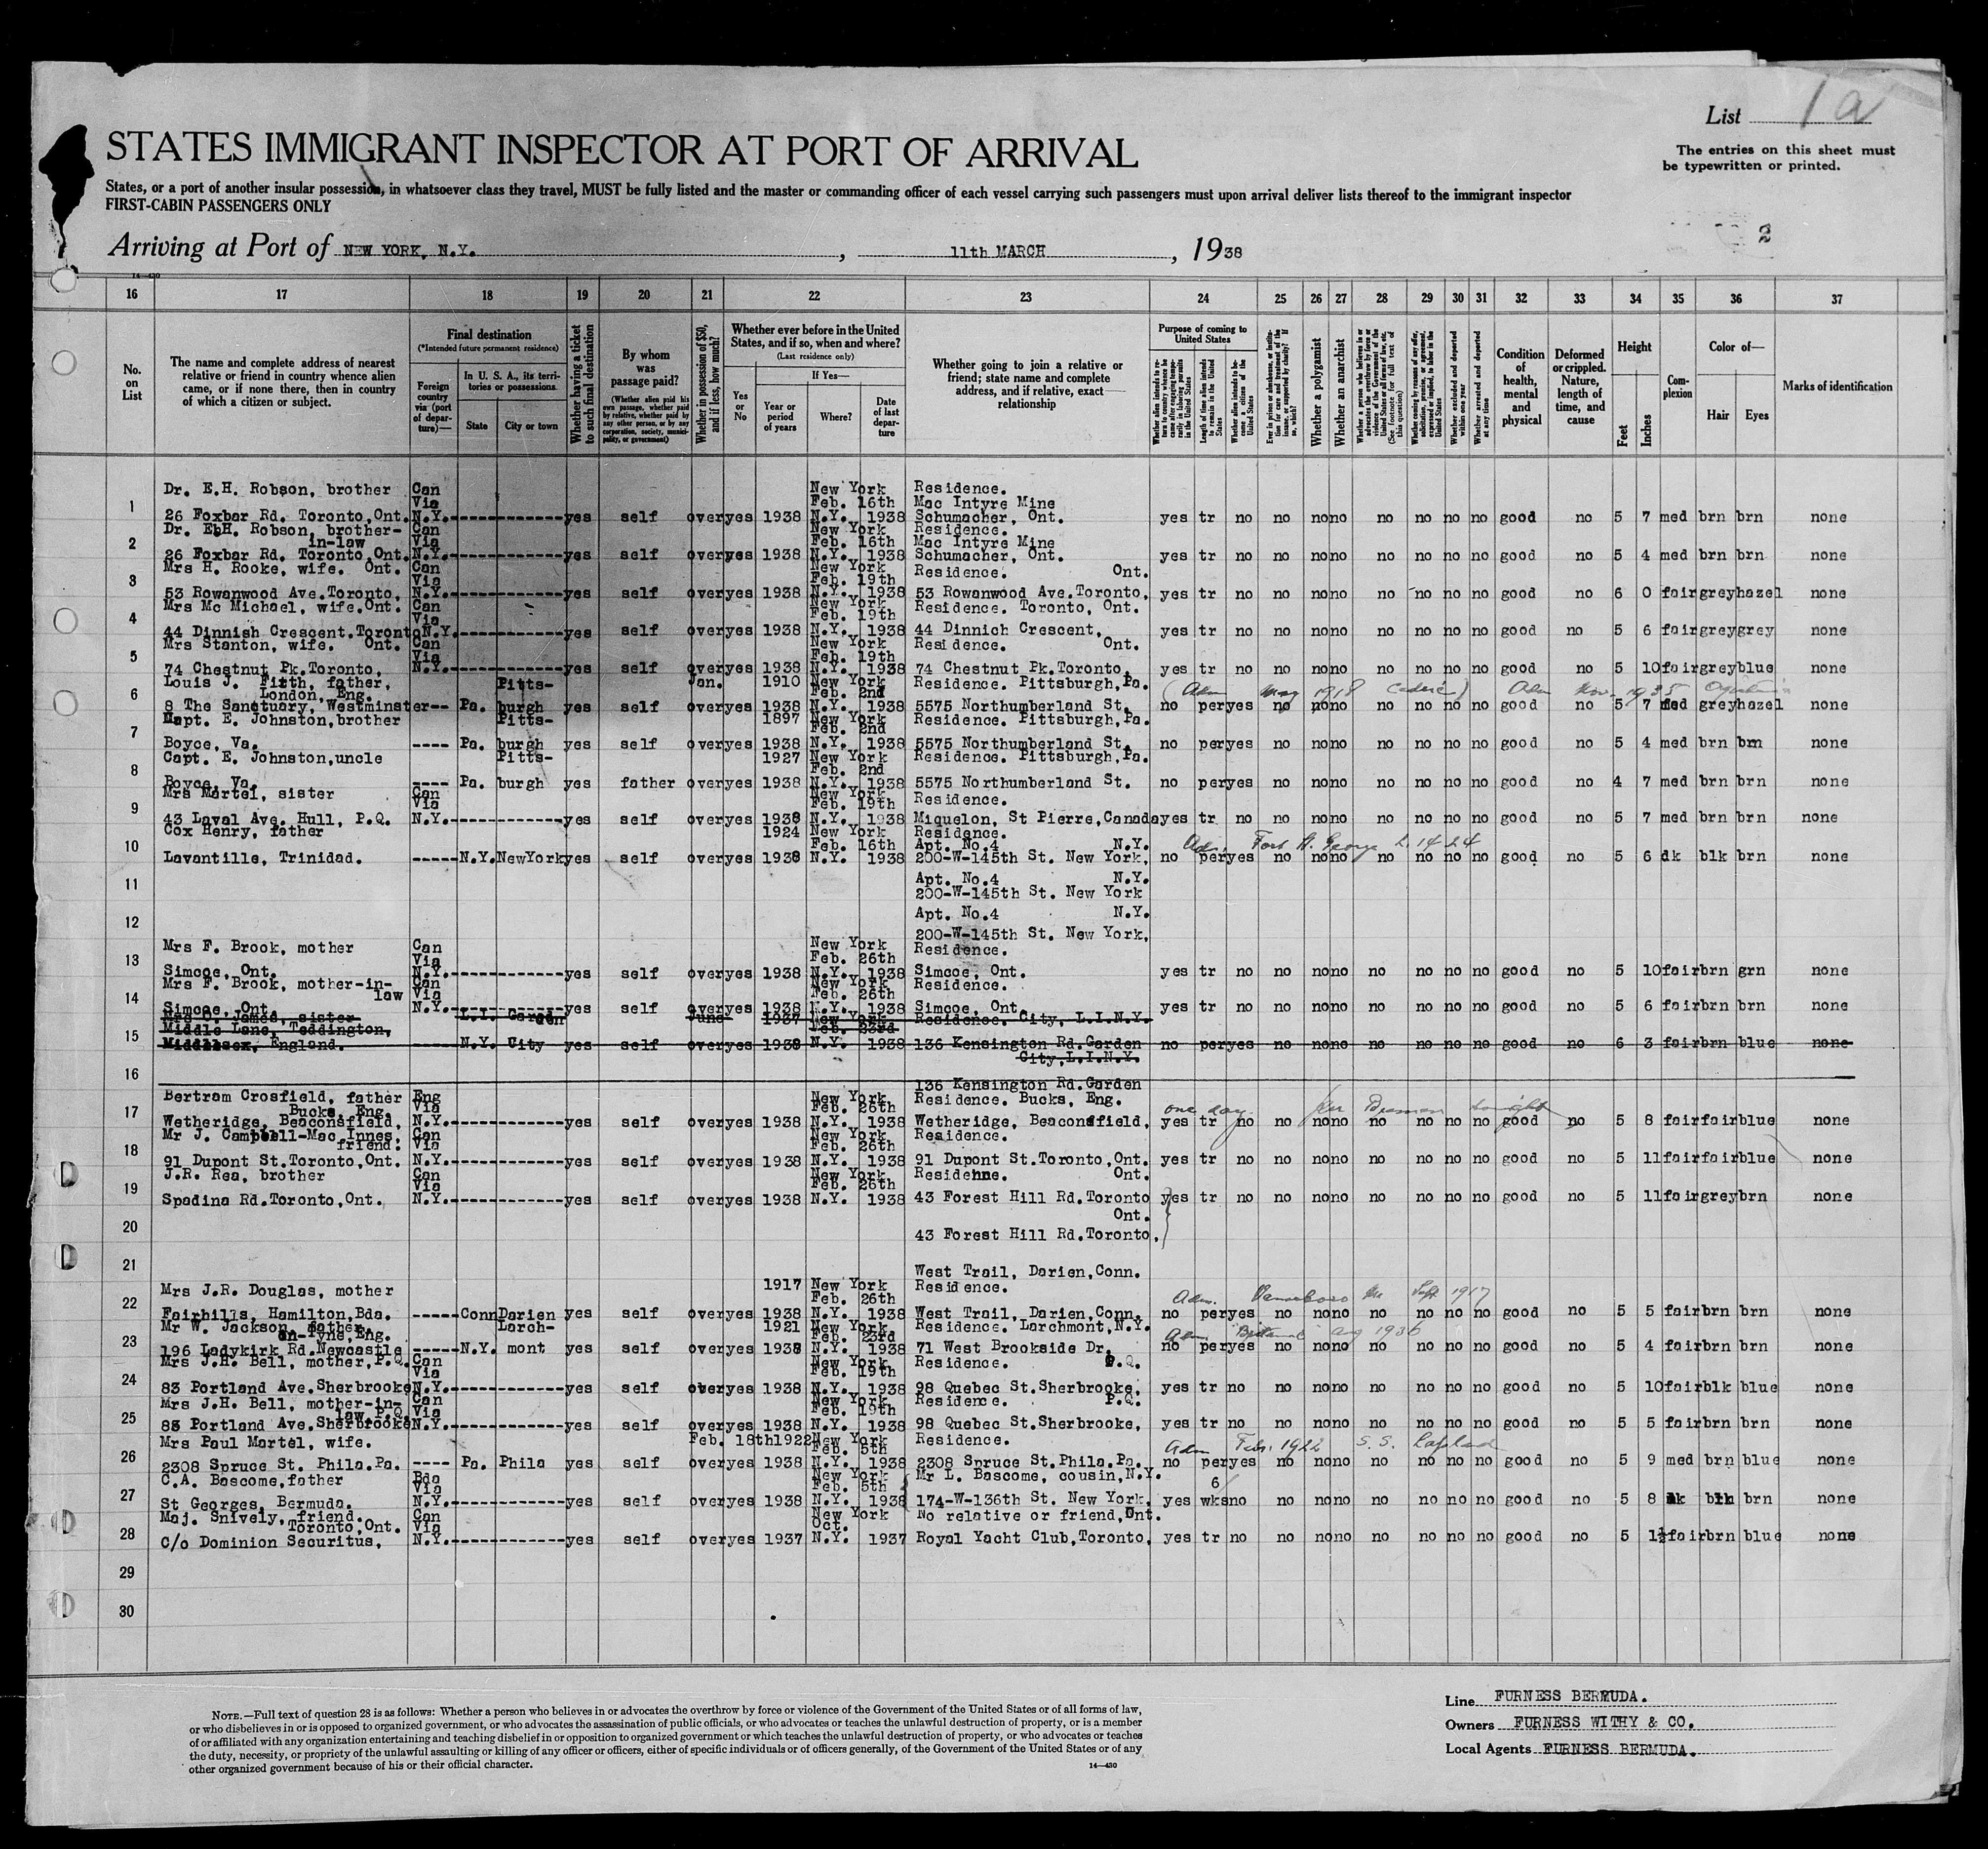 List 1a
The entries on this sheet must
be typewritten or printed.
STATES IMMIGRANT INSPECTOR AT PORT OF ARRIVAL
States, or a port of another insular possession, in whatsoever class they travel, MUST be fully listed and the master or commanding officer of each vessel carrying such passengers must upon arrival deliver lists thereof to the immigrant inspector
FIRST-CABIN PASSENGERS ONLY
2
Arriving at Port of NEW YORK, N.Y. , 11th MARCH , 1938
14-430
16 17 18 19 20 21 22 23 24 25 26 27 28 29 30 31 32 33 34 35 36 37
No. on List
The name and complete address of nearest relative or friend in country whence alien came, or if none there, then in country of which a citizen or subject.
Final destination
(*Intended future permanent residence)
Foreign country via (port of departure)—
In U. S. A., its territories or possessions.
State
City or town
Whether having a ticket to such final destination
By whom was passage paid?
(Whether alien paid his own passage, whether paid by relative, whether paid by any other person, or by any corporation, society, municipality, or government)
Whether in possession of $50, and if less, how much?
Whether ever before in the United States, and if so, when and where?
(Last residence only)
If Yes—
Yes or No
Year or period of years
Where?
Date of last departure
Whether going to join a relative or friend; state name and complete address, and if relative, exact relationship
Purpose of coming to United States
Whether alien intends to return to country whence he came after engaging temporarily in laboring pursuits in the United States
Length of time alien intends to remain in the United States
Whether alien intends to become a citizen of the United States
Ever in prison or almshouse, or institution for care and treatment of the insane, or supported by charity? If so, which?
Whether a polygamist
Whether an anarchist
Whether a person who believes in or advocates the overthrow by force or violence of the Government of the United States or all forms of law, etc. (See footnote for full text of this question)
Whether coming by reason of any offer, solicitation, promise, or agreement, expressed or implied, to labor in the United States
Whether excluded and deported within one year
Whether arrested and deported at any time
Condition of health, mental and physical
Deformed or crippled. Nature, length of time, and cause
Height
Feet
Inches
Complexion
Color of—
Hair
Eyes
Marks of identification
Dr. E.H. Robson, brother Can New York Residence.
Via Feb. 16th Mac Intyre Mine
1 26 Foxbar Rd. Toronto,Ont. N.Y.------------yes self over yes 1938 N.Y. 1938 Schumacher, Ont. yes tr no no no no no no no no good no 5 7 med brn brn none
Dr. E.H. Robson, brother- Can New York Residence.
in-law Via Feb. 16th Mac Intyre Mine
2 26 Foxbar Rd. Toronto,Ont. N.Y.------------yes self over yes 1938 N.Y. 1938 Schumacher, Ont. yes tr no no no no no no no no good no 5 4 med brn brn none
Mrs H. Rooke, wife. Ont. Can New York Residence. Ont.
Via Feb. 19th
3 53 Rowanwood Ave.Toronto, N.Y.------------yes self over yes 1938 N.Y. 1938 53 Rowanwood Ave.Toronto, yes tr no no no no no no no no good no 6 0 fair grey hazel none
Mrs Mc Michael, wife.Ont. Can New York Residence. Toronto, Ont.
Via Feb. 19th
4 44 Dinnish Crescent.Toronto N.Y.------------yes self over yes 1938 N.Y. 1938 44 Dinnich Crescent, yes tr no no no no no no no no good no 5 6 fair grey grey none
Mrs Stanton, wife. Ont. Can New York Residence. Ont.
Via Feb. 19th
5 74 Chestnut Pk.Toronto, N.Y.------------yes self over yes 1938 N.Y. 1938 74 Chestnut Pk.Toronto, yes tr no no no no no no no no good no 5 10 fair grey blue none
Louis J. Firth, father, Pitts- Jan. 1910 New York Residence. Pittsburgh,Pa.
London, Eng. Feb. 2nd (Adm May 1918 Cedric) Adm Nov. 1935
6 8 The Sanctuary, Westminster-- Pa. burgh yes self over yes 1938 N.Y. 1938 5575 Northumberland St. no per yes no no no no no no no good no 5 7 med grey hazel none
Capt. E. Johnston,brother Pitts- 1897 New York Residence. Pittsburgh,Pa.
Feb. 2nd
7 Boyce, Va. ---- Pa. burgh yes self over yes 1938 N.Y. 1938 5575 Northumberland St. no per yes no no no no no no no good no 5 4 med brn brn none
Capt. E. Johnston,uncle Pitts- 1927 New York Residence. Pittsburgh,Pa.
Feb. 2nd
8 Boyce, Va. ---- Pa. burgh yes father over yes 1938 N.Y. 1938 5575 Northumberland St. no per yes no no no no no no no good no 4 7 med brn brn none
Mrs Martel, sister Can New York Residence.
Via Feb. 19th
9 43 Laval Ave. Hull, P.Q. N.Y.------------yes self over yes 1938 N.Y. 1938 Miquelon, St Pierre,Canada yes tr no no no no no no no no good no 5 7 med brn brn none
Cox Henry, father 1924 New York Residence.
Feb. 16th Apt. No.4 N.Y. Adm. Fort St. George 2.14 24
10 Lavantille, Trinidad. -----N.Y. New York yes self over yes 1938 N.Y. 1938 200-W-145th St. New York, no per yes no no no no no no no good no 5 6 dk blk brn none
11 Apt. No.4 N.Y.
200-W-145th St. New York
12 Apt. No.4 N.Y.
200-W-145th St. New York,
Mrs F. Brook, mother Can New York Residence.
Via Feb. 26th
13 Simcoe, Ont. N.Y.------------yes self over yes 1938 N.Y. 1938 Simcoe, Ont. yes tr no no no no no no no no good no 5 10 fair brn grn none
Mrs F. Brook, mother-in- Can New York Residence.
law Via Feb. 26th
14 Simcoe, Ont. N.Y.------------yes self over yes 1938 N.Y. 1938 Simcoe, Ont. yes tr no no no no no no no no good no 5 6 fair brn brn none
James, sister L.I. Garden June 1937 New York Residence. City, L.I.N.Y.
Middle Lane, Teddington, Feb. 23rd
15 Middlesex, England. -----N.Y. City yes self over yes 1938 N.Y. 1938 136 Kensington Rd.Garden no per yes no no no no no no no good no 6 3 fair brn blue none
City,L.I.N.Y.
16 136 Kensington Rd.Garden
Bertram Crosfield, father Eng New York Residence. Bucks, Eng.
Bucks, Eng. Via Feb. 26th one day per Bremen tonight
17 Wetheridge, Beaconsfield, N.Y.------------yes self over yes 1938 N.Y. 1938 Wetheridge, Beaconsfield, yes tr no no no no no no no no good no 5 8 fair fair blue none
Mr J. Campbell-Mac Innes, Can New York Residence.
friend. Via Feb. 26th
18 91 Dupont St.Toronto,Ont. N.Y.------------yes self over yes 1938 N.Y. 1938 91 Dupont St.Toronto,Ont. yes tr no no no no no no no no good no 5 11 fair fair blue none
J.R. Rea, brother Can New York Residence. Ont.
Via Feb. 26th
19 Spadina Rd.Toronto,Ont. N.Y.------------yes self over yes 1938 N.Y. 1938 43 Forest Hill Rd.Toronto yes tr no no no no no no no no good no 5 11 fair grey brn none
20 Ont.
43 Forest Hill Rd.Toronto,
21 West Trail, Darien,Conn.
Mrs J.R. Douglas, mother 1917 New York Residence.
Feb. 26th Adm. Vanceboro Me Sept 1917
22 Fairhills, Hamilton,Bda. -----Conn Darien yes self over yes 1938 N.Y. 1938 West Trail, Darien,Conn. no per yes no no no no no no no good no 5 5 fair brn brn none
Mr W. Jackson, father, Larch- 1921 New York Residence. Larchmont,N.Y.
on-Tyne,Eng. Feb. 23rd Adm Britannic Aug 1936
23 196 Ladykirk Rd.Newcastle -----N.Y. mont yes self over yes 1938 N.Y. 1938 71 West Brookside Dr. no per yes no no no no no no no good no 5 4 fair brn brn none
Mrs J.H. Bell, mother,P.Q. Can New York Residence. P.Q.
Via Feb. 19th
24 83 Portland Ave.Sherbrooke N.Y.------------yes self over yes 1938 N.Y. 1938 98 Quebec St.Sherbrooke, yes tr no no no no no no no no good no 5 10 fair blk blue none
Mrs J.H. Bell, mother-in- Can New York Residence. P.Q.
law,P.Q. Via Feb. 19th
25 83 Portland Ave.Sherbrooke N.Y.------------yes self over yes 1938 N.Y. 1938 98 Quebec St.Sherbrooke, yes tr no no no no no no no no good no 5 5 fair brn brn none
Mrs Paul Martel, wife. Feb. 18th 1922 New York Residence.
Feb. 5th Adm Feb. 1922 S.S. Lapland
26 2308 Spruce St. Phila.Pa. ---- Pa. Phila yes self over yes 1938 N.Y. 1938 2308 Spruce St.Phila.Pa. no per yes no no no no no no no good no 5 9 med brn blue none
C.A. Bascome,father Bda New York Mr L. Bascome, cousin,N.Y.
Via Feb. 5th 6
27 St Georges, Bermuda. N.Y.------------yes self over yes 1938 N.Y. 1938 174-W-136th St. New York. yes wks no no no no no no no no good no 5 8 dk blk brn none
Maj. Snively, friend. Can New York No relative or friend,Ont.
Toronto,Ont. Via Oct.
28 c/o Dominion Securitus, N.Y.------------yes self over yes 1937 N.Y. 1937 Royal Yacht Club,Toronto, yes tr no no no no no no no no good no 5 1½ fair brn blue none
29
30
NOTE.—Full text of question 28 is as follows: Whether a person who believes in or advocates the overthrow by force or violence of the Government of the United States or of all forms of law,
or who disbelieves in or is opposed to organized government, or who advocates the assassination of public officials, or who advocates or teaches the unlawful destruction of property, or is a member
of or affiliated with any organization entertaining and teaching disbelief in or opposition to organized government or which teaches the unlawful destruction of property, or who advocates or teaches
the duty, necessity, or propriety of the unlawful assaulting or killing of any officer or officers, either of specific individuals or of officers generally, of the Government of the United States or of any
other organized government because of his or their official character.
14—430
Line FURNESS BERMUDA.
Owners FURNESS WITHY & CO.
Local Agents FURNESS BERMUDA.